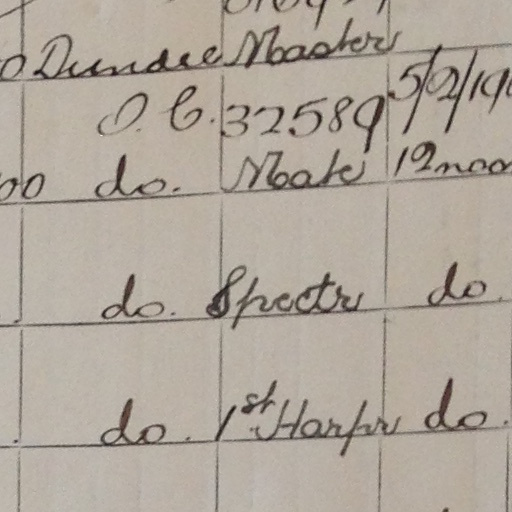 Dundee Master
O.C. 32589 5/2/19
00 do. Mate 12 noon
do. Spectr do.
do. 1st Harpr do.